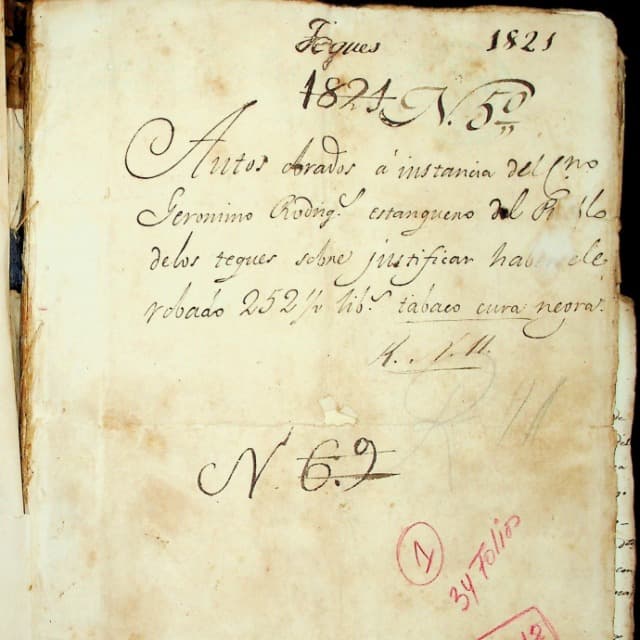 Teques 1821
1821 N. 5º
Autos obrados á instancia del Cno
Geronimo Rodrigˢ estanquero del
delos teques sobre justificar haber ele
robado 252½ libˢ tabaco cura negra.
Nº 6.º
1
34 Folios